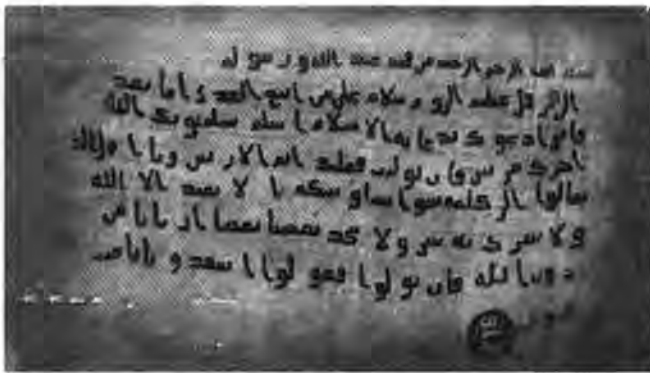 بسم الله الرحمن الرحيم من محمد عبد الله ورسوله
الى هرقل عظيم الروم سلام على من اتبع الهدى اما بعد
فانى ادعوك بدعاية الاسلام اسلم تسلم يوتك الله
اجرك مرتين وان توليت فعليك اثم الاريسين ويا اهل
تعالوا الى كلمة سوا بيننا وبينكم ا لا نعبد الا الله
ولا نشرك به شيا ولا يتخذ بعضنا بعضا اربابا من
دون الله فان تولوا فقولوا اشهدوا بانا مس
لمون